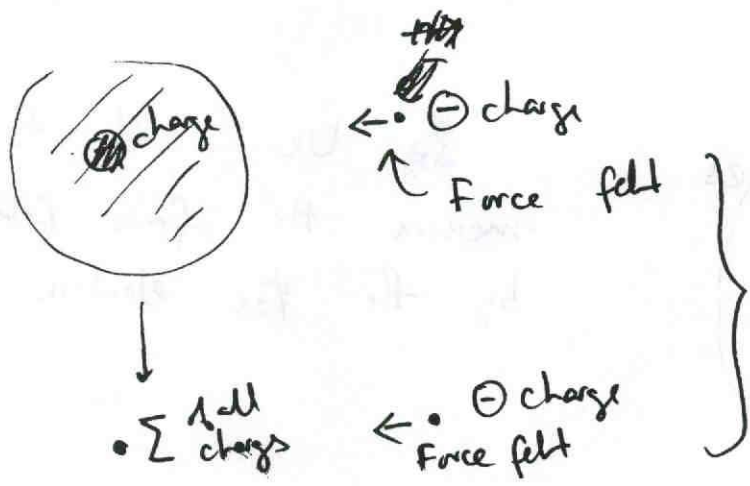 charge
⊖ charge
Force felt
• Σ all
charges
⊖ charge
Force felt